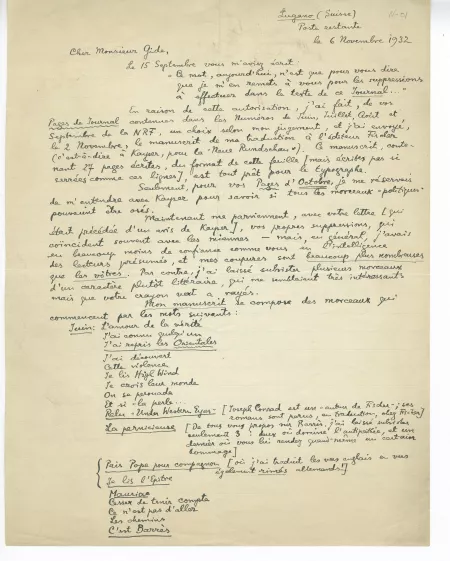 Lugano (Suisse)
Poste restante
le 6 Novembre 1932
Cher Monsieur Gide,
Le 15 Septembre vous m'aviez écrit:
"Ce mot, aujourd'hui, n'est que pour vous dire
que je m'en remets à vous pour les suppressions
à effectuer dans le texte de ce Journal..."
En raison de cette autorisation, j'ai fait, de vos
Pages de Journal contenues dans les Numéros de Juin, Juillet, Août et
Septembre de la NRF, un choix selon mon jugement, et j'ai envoyé,
le 2 Novembre, le manuscrit de ma traduction à l'éditeur Fischer
(c'est-à-dire à Kayser, pour la "Neue Rundschau"). Ce manuscrit, conte-
nant 27 pages écrites, du format de cette feuille [mais écrites pas si
serrées comme ces lignes], est tout prêt pour le typographe.
Seulement, pour vos Pages d'Octobre, je me réservais
de m'entendre avec Kayser pour savoir si tous les morceaux "politiques"
pouvaient être osés.
Maintenant me parviennent, avec votre lettre [qui
était précédée d'un avis de Kayser], vos propres suppressions, qui
coïncident souvent avec les miennes - mais, en général, j'avais
eu beaucoup moins de confiance comme vous en l'intelligence
des lecteurs et mes coupures sont beaucoup plus nombreuses
que les vôtres. Par contre, j'ai laissé subsister plusieurs morceaux
d'un caractère plutôt littéraire, qui me semblaient très intéressants
mais que votre crayon rayés.
Mon manuscrit se compose des morceaux qui
commencent par les mots suivants:
Juin: L'amour de la vérité
J'ai connu quelqu'un
J'ai repris les Orientales
J'ai découvert
Cette violence
Je lis High Wind
Je crois leur monde
On se persuade
Et si la perle...
Relu - Under Western Eyes - [Joseph Conrad est un auteur de Fischer - ses
romans sont parus, en traduction, chez Fischer]
La pernicieuse [De tous vos propos sur Barrès, j'ai laissé subsister
seulement 3: deux où domine l'antipathie, et un
dernier où vous lui rendez quand-même un certain
hommage]
Pris Pope pour compagnon [où j'ai traduit les vers anglais en vers
également rimés allemands!]
Je lis l'Epître
Mauriac
Cesser de tenir compte
Ce n'est pas d'aller
Les chemins
C'est Barrès